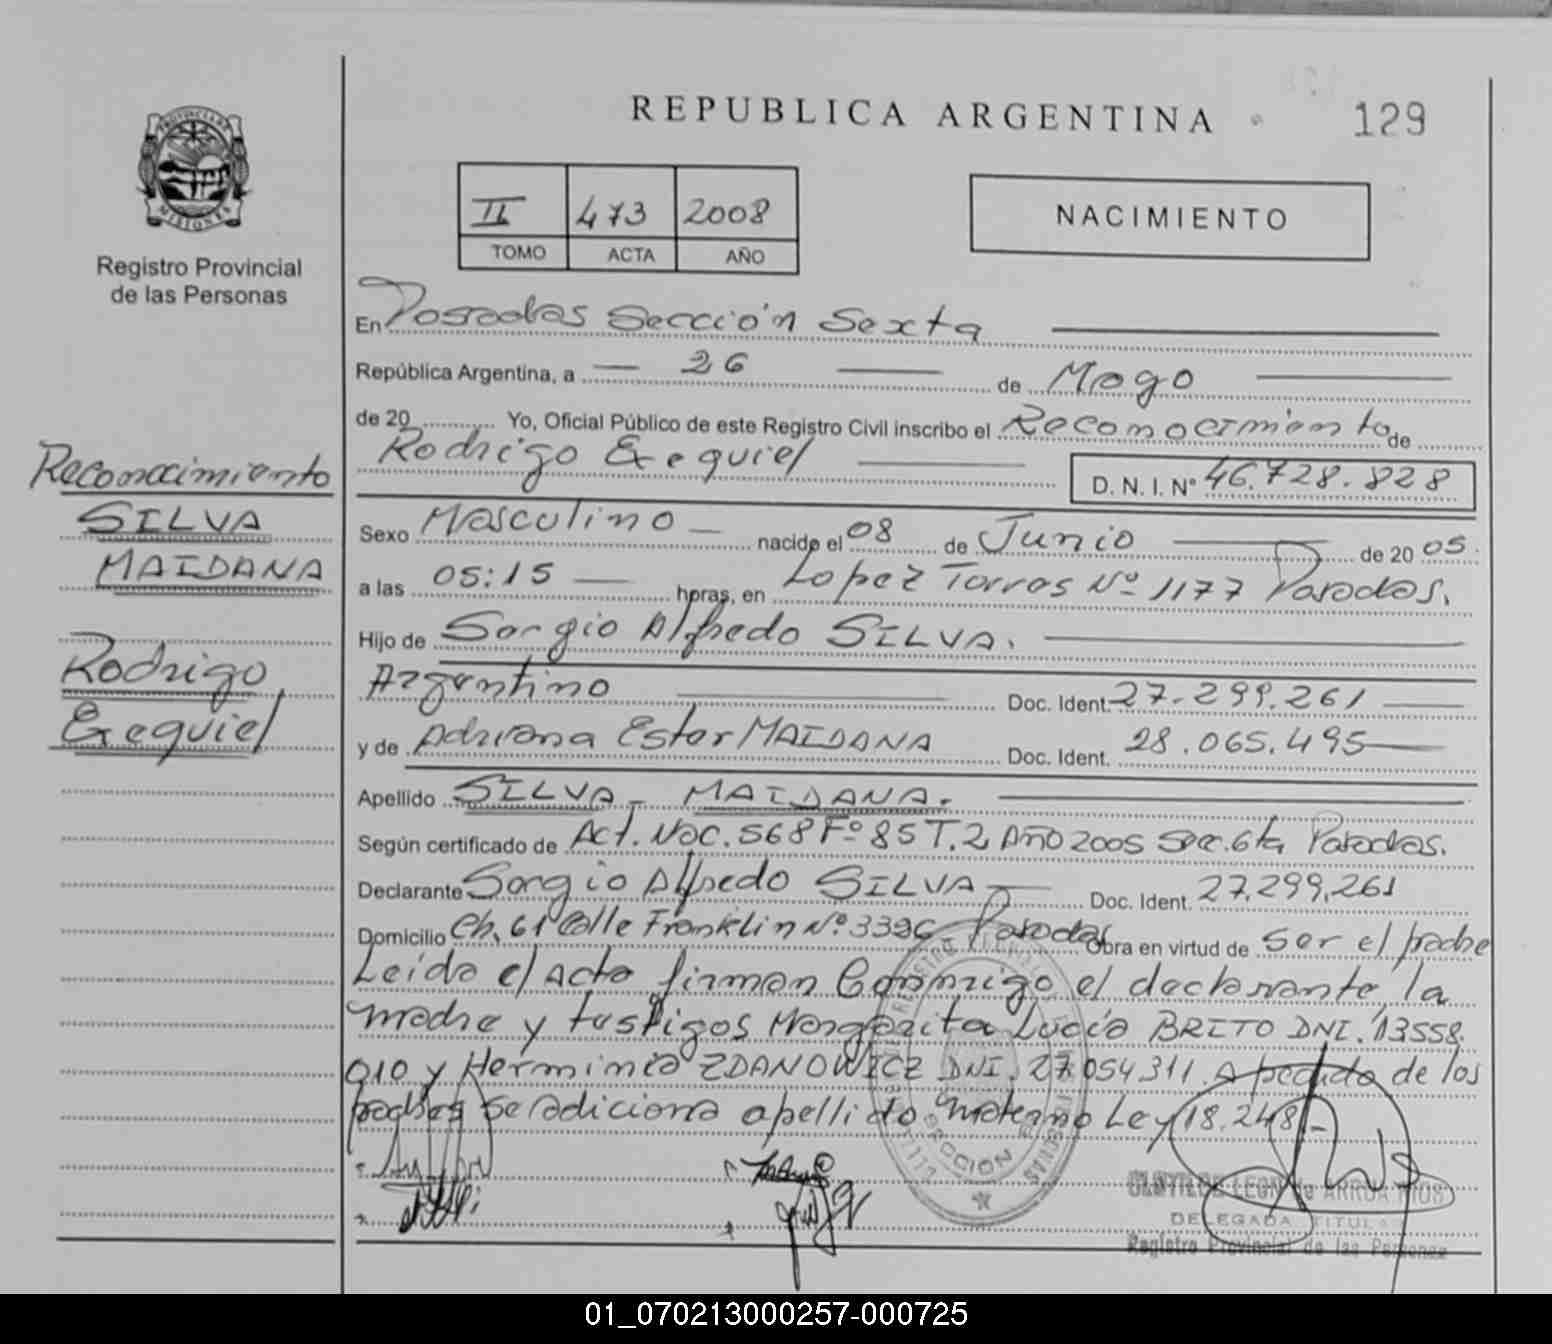 REPUBLICA ARGENTINA
129
PROVINCIA DE
MISIONES
Registro Provincial
de las Personas
II 473 2008
TOMO ACTA AÑO
NACIMIENTO
En Posadas Sección Sexta
República Argentina, a 26 de Mayo
de 20 Yo, Oficial Público de este Registro Civil inscribo el Reconocimiento de
Rodrigo Exequiel D. N. I. Nº 46.728.828
Reconocimiento
SILVA
MAIDANA
Rodrigo
Exequiel
Sexo Masculino nacido el 08 de Junio de 20 05.
a las 05:15 horas, en Lopez Torres Nº 1177 Posadas.
Hijo de Sergio Alfredo SILVA.
Argentino Doc. Ident. 27.299.261
y de Adriana Ester MAIDANA Doc. Ident. 28.065.495
Apellido SILVA - MAIDANA.
Según certificado de Act. Nac. 568 Fº 85 T. 2 AÑO 2005 Sec. 6ta Posadas.
Declarante Sergio Alfredo SILVA Doc. Ident. 27.299.261
Domicilio Ch. 61 Calle Franklin Nº 3396 Posadas Obra en virtud de ser el padre
Leída el Acta firman Conmigo el declarante, la
madre y testigos Margarita Lucía BRITO DNI. 13558.
010 y Herminia ZDANOWICZ DNI. 27.054311. A pedido de los
padres se adiciona apellido materno Ley 18.248 -
SECCION
CLOTILDE LEON de ARRUA RIOS
DELEGADA TITULAR
Registro Provincial de las Personas
01_070213000257-000725